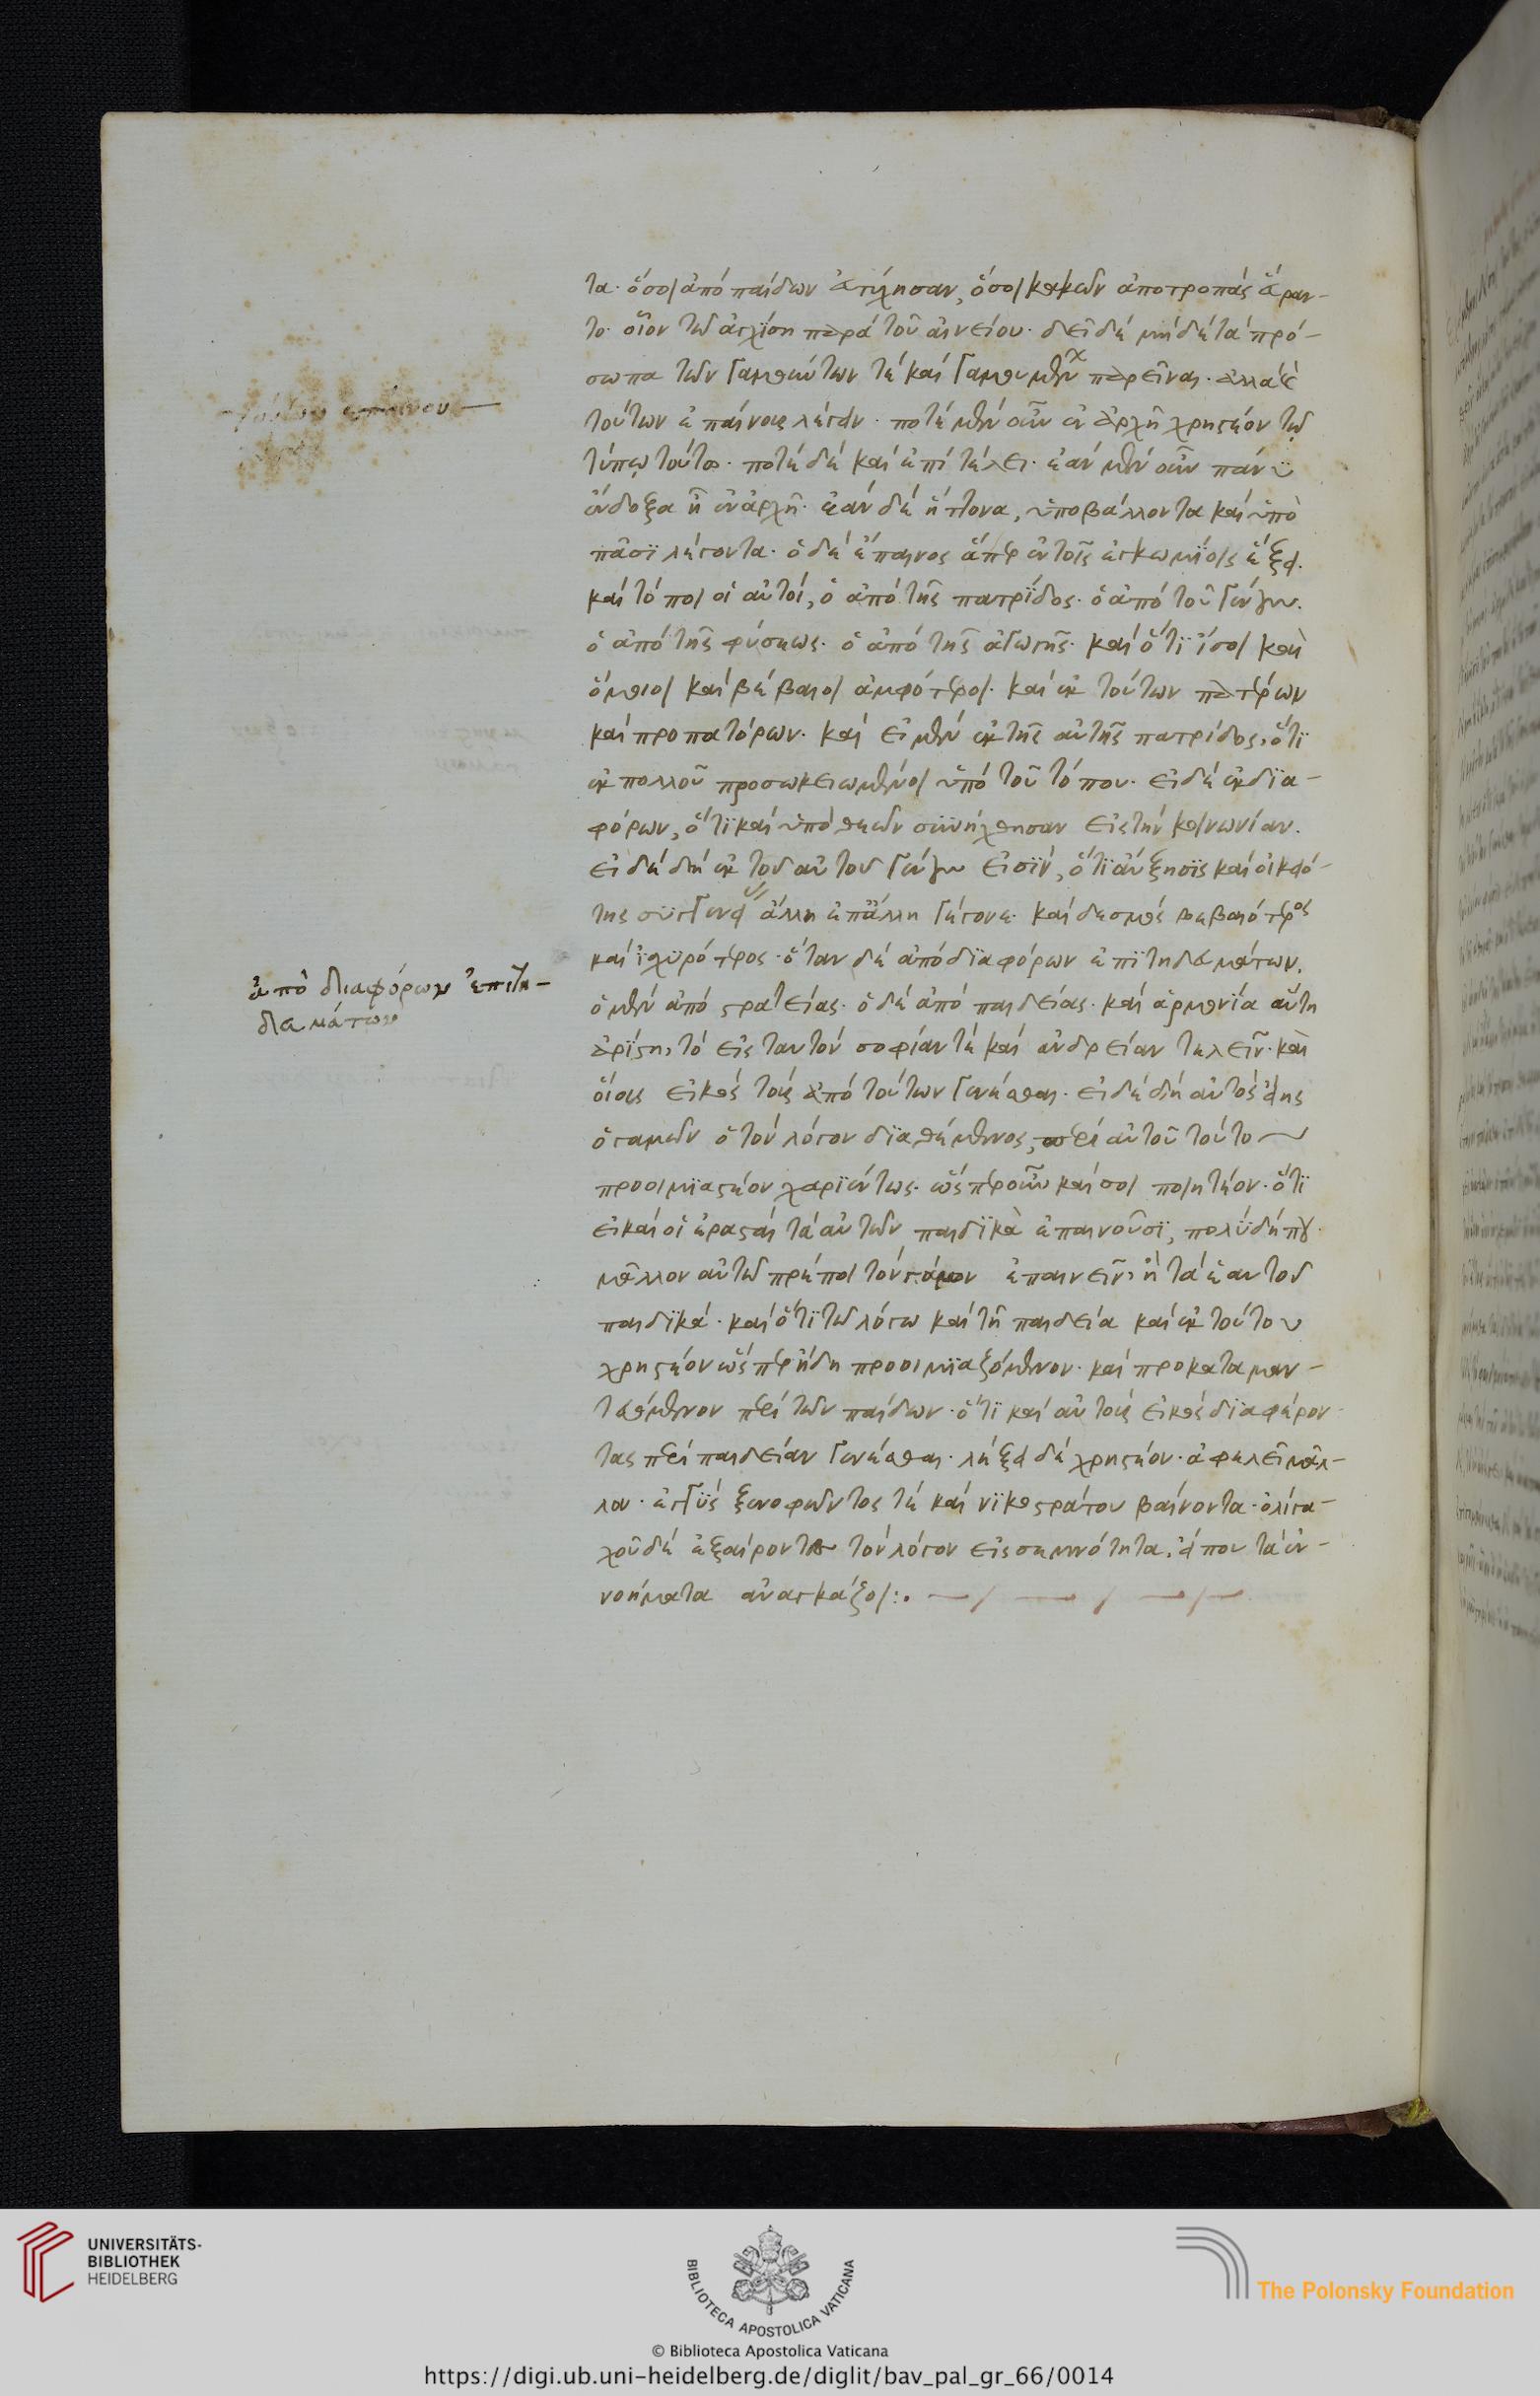 τα· ὅσοι ἀπό παίδων εὐτύχησαν, ὅσοι κακῶν ἀποτροπάς εὕραν-
το· οἷον τῶ ἀγχίση παρά τοῦ αἰνείου· δεῖ δέ μηδέ τά πρό-
σωπα τῶν γαμούντων τέ καί γαμουμένων παρεῖναι· ἀλλά καί
τούτων ἐπαίνους λέγειν· ποτέ μέν οὖν ἐν ἀρχῆ χρηστέον τῷ
τύπῳ τούτω· ποτέ δέ καί ἐπί τέλει· ἐάν μέν οὖν πάνυ
ἔνδοξα ἦ ἐν ἀρχῆ· ἐάν δέ ἥττονα, ὑποβάλλοντα καί ὑπό
πᾶσϊ λέγοντα· ὁ δέ ἔπαινος ἅπερ ἐν τοῖς ἐγκωμϊοις ἕξει·
καί τόποι οἱ αὐτοί, ὁ ἀπό τῆς πατρϊδος· ὁ ἀπό τοῦ γένους·
ὁ ἀπό τῆς φύσεως· ὁ ἀπό τῆς ἀγωγῆς· καί ὅτϊ ἴσοι καὶ
ὅμοιοι καί βέβαιοι ἀμφότεροι· καί ἐκ τούτων πατέρων
καί προπατόρων· καί εἰ μέν ἐκ τῆς αὐτῆς πατρίδος, ὅτϊ
ἐκ πολλοῦ προσωκειωμένοι ὑπό τοῦ τόπου· εἰ δέ ἐκ δϊα-
φόρων, ὅτϊ καί ὑπό θεῶν συνήχθησαν εἰς τήν κοινωνίαν·
εἰ δέ δή ἐκ τοῦ αὐτοῦ γένους εἰσϊν, ὅτϊ αὔξησϊς καί οἰκειό-
της συγγενεῖ ἄλλη ἐπ ἄλλη γέγονε· καί δεσμός βεβαιότερος
καί ἰσχυρότερος· ὅταν δέ ἀπό δϊαφόρων ἐπϊτηδευμάτων,
ὁ μέν ἀπό στρατείας· ὁ δέ ἀπό παιδείας· καί ἁρμονία αὕτη
ἀρϊστη, τό εἰς ταυτόν σοφίαν τέ καί ἀνδρείαν τελεῖν· καὶ
οἵους εἰκός τούς ἀπό τούτων γενέσθαι· εἰ δέ δή αὐτός εἴης
ὁ γαμῶν ὁ τόν λόγον δϊαθέμενος, περί αὐτοῦ τούτο
προοιμϊαστέον χαρϊέντως· ὥσπερ οὖν καί σοι ποιητέον· ὅτϊ
εἰ καί οἱ ἐρασταί τά αὐτῶν παιδϊκὰ ἐπαινοῦσϊ, πολύ δή που
μᾶλλον αὐτῶ πρέποι τόν γάμον ἐπαινεῖν, ἤ τά ἑαυτοῦ
παιδϊκά· καί ὅτϊ τῶ λόγω καί τῆ παιδεία καί ἐκ τούτου
χρηστέον ὥσπερ ἤδη προοιμϊαζόμενον· καί προκαταμαν-
τευόμενον περί τῶν παίδων· ὅτϊ καί αὐτούς εἰκός δϊαφέρον-
τας περί παιδείαν γενέσθαι· λέξει δέ χρηστέον· ἀφελεῖ μᾶλ-
λον· ἐγγύς ξενοφῶντος τέ καί νϊκοστράτου βαίνοντα· ὀλίγα-
χοῦ δέ ἐξαίροντα τόν λόγον εἰς σεμνότητα, εἴπου τά ἐν-
νοήματα ἀναγκάζοι:·
τούτων ἐπαίνου
ἀπὸ διαφόρων ἐπιτη-
δευμάτων
UNIVERSITÄTS-
BIBLIOTHEK
HEIDELBERG
BIBLIOTECA APOSTOLICA VATICANA
The Polonsky Foundation
© Biblioteca Apostolica Vaticana
https://digi.ub.uni-heidelberg.de/diglit/bav_pal_gr_66/0014